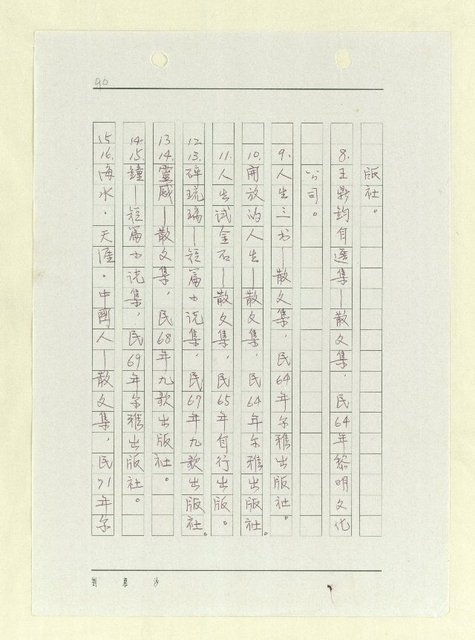 90
版社。
8.王鼎鈞自選集—散文集，民64年黎明文化
公司。
9.人生三书—散文集，民64年尔雅出版社。
10.開放的人生—散文集，民64年尔雅出版社。
11.人生試金石—散文集，民65年自行出版。
12.13.碎琉璃—短篇小说集，民67年九歌出版社。
13.14.靈感—散文集，民68年九歌出版社。
14.15.鐘—短篇小说集，民69年尔雅出版社。
15.16.海水·天涯·中國人—散文集，民71年尔
劉慕沙